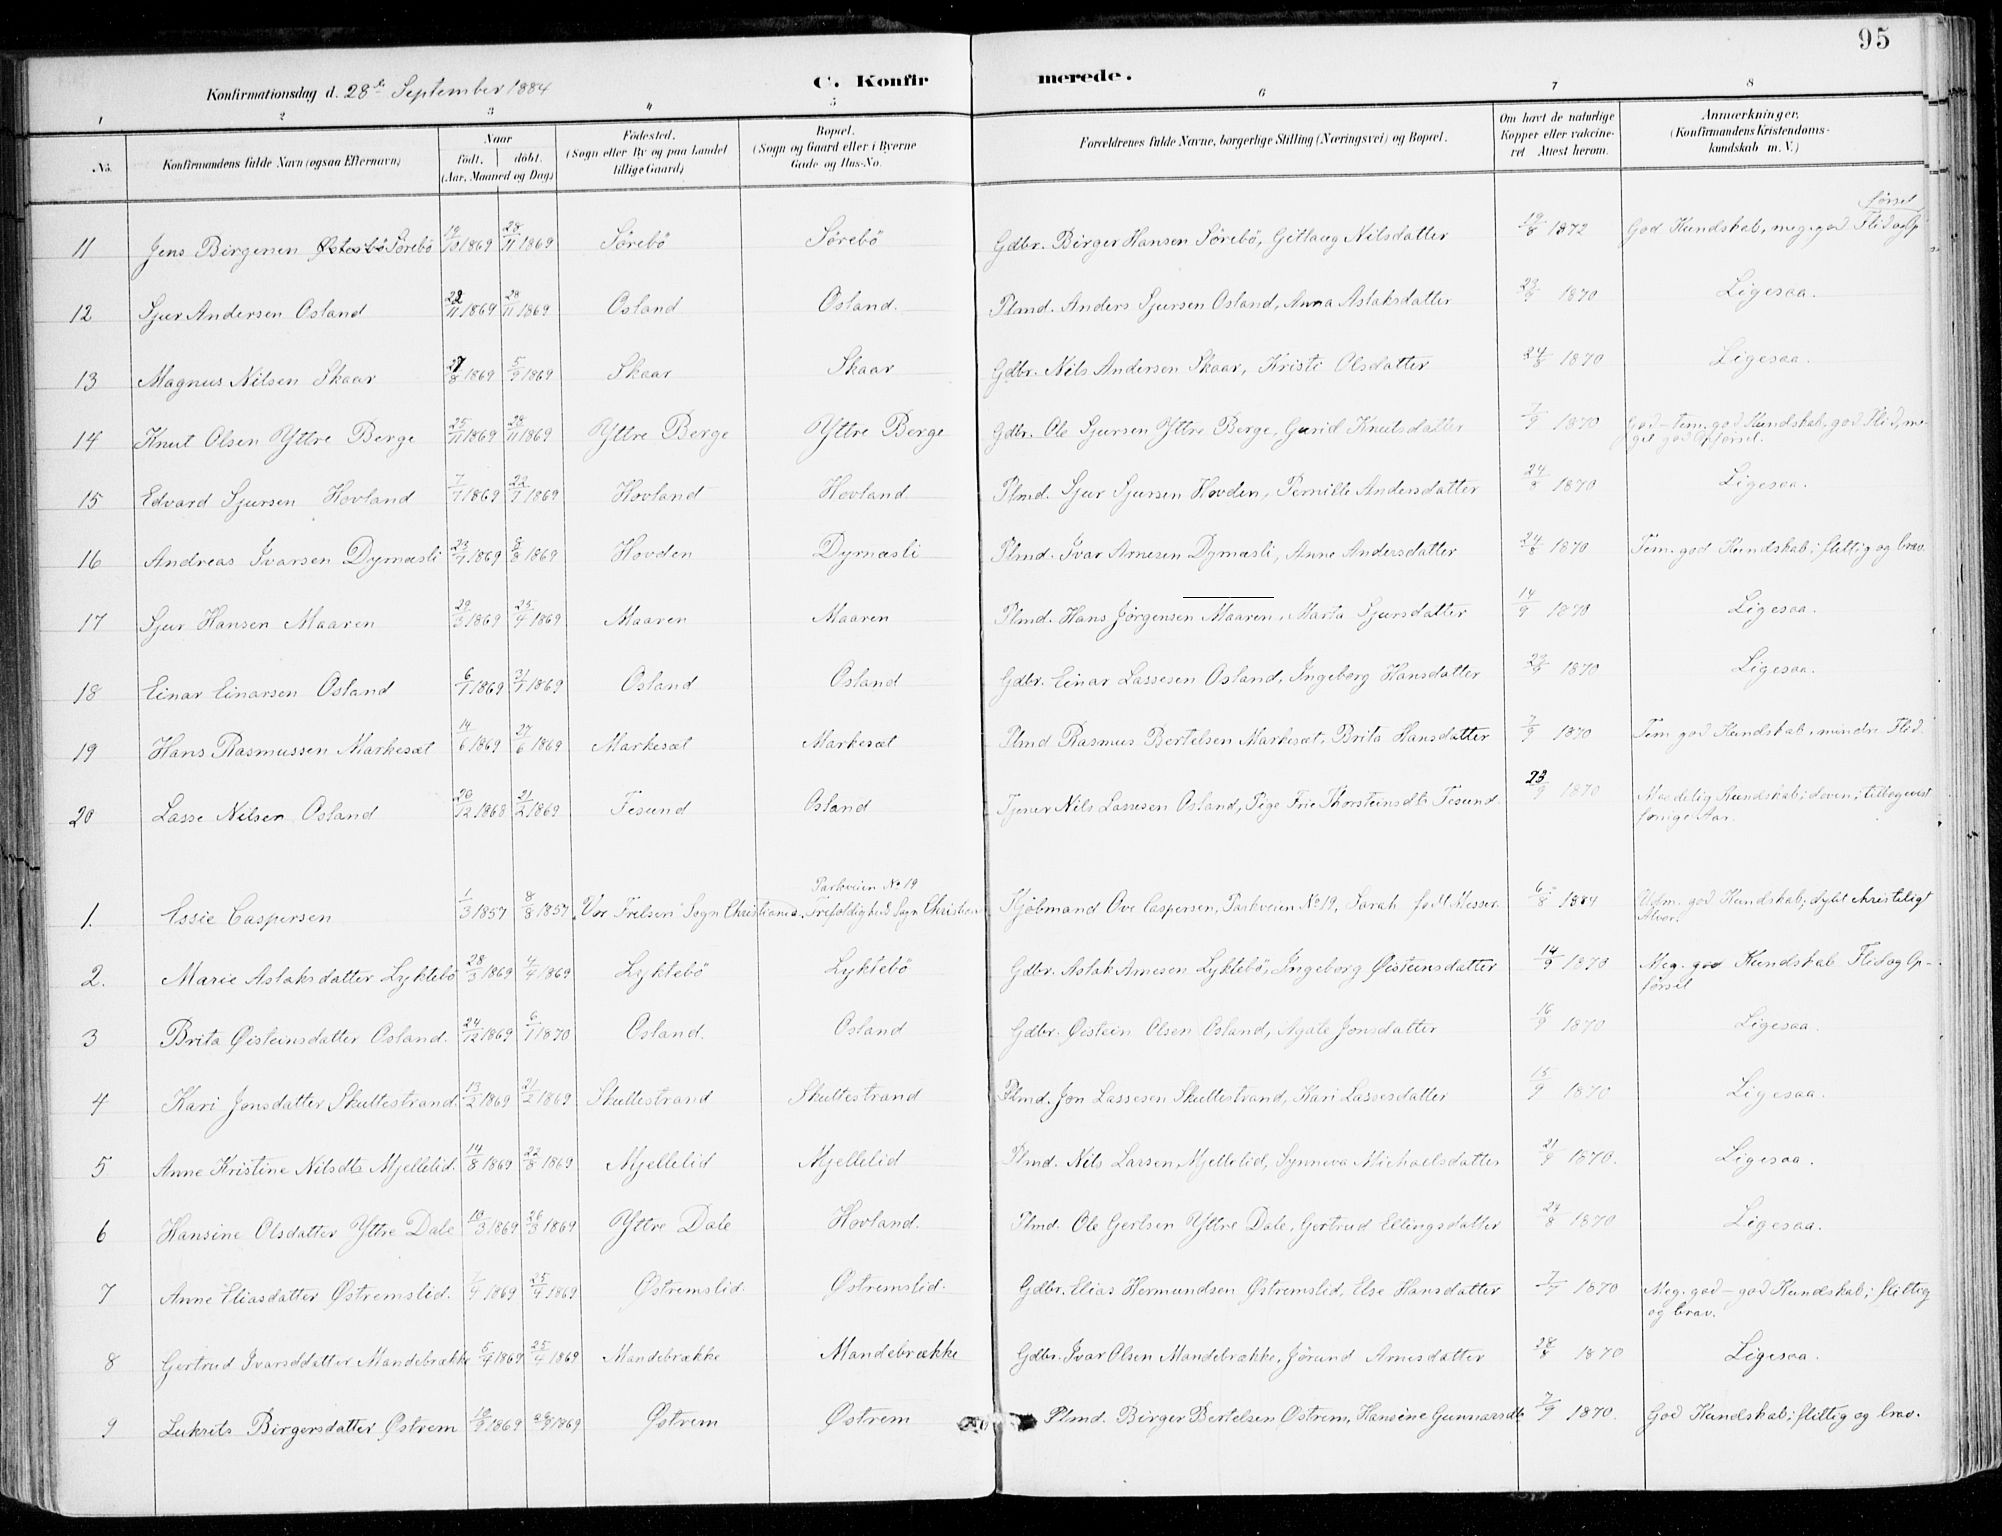 95
Konfirmationsdag d. 28de September 1884
C. Konfirmerede.
1 2 3 4 5 6 7 8
No. | Konfirmandens fulde Navn (ogsaa Efternavn) | Naar født. døbt. (Aar, Maaned og Dag) | Fødested. (Sogn eller By og paa Landet tillige Gaard) | Bopæl. (Sogn og Gaard eller i Byerne Gade og Hus-No. | Forældrenes fulde Navne, borgerlige Stilling (Næringsvei) og Bopæl. | Om havt de naturlige Kopper eller vakcineret Attest herom. | Anmærkninger. (Konfirmandens Kristendomskundskab m. V.)
11 Jens Birgersen Sørebö 19/10 1869 28/11 1869 Sörebö Sörebö Gdbr. Birger Hansen Sörebö, Gitlaug Nilsdatter 19/8 1872 God Kundskab, meg. god Flid og Opförsel
12 Sjur Andersen Osland 22/11 1869 28/11 1869 Osland Osland. Plmd. Anders Sjursen Osland, Anna Aslaksdatter 23/9 1870 Ligesaa.
13 Magnus Nilsen Skaar 27/8 1869 5/9 1869 Skaar Skaar Gdbr. Nils Andersen Skaar, Kristi Olsdatter 24/8 1870 Ligesaa.
14 Knut Olsen Yttre Berge 25/11 1869 28/11 1869 Yttre Berge Yttre Berge Gdbr. Ole Sjursen Yttre Berge, Gurid Knutsdatter 7/9 1870 God-tem. god Kundskab, god Flid, meget god Opförsel.
15 Edvard Sjursen Hovland 7/7 1869 22/7 1869 Hovland Hovland Plmd. Sjur Sjursen Hovden, Pernille Andersdatter 24/8 1870 Ligesaa.
16 Andreas Ivarsen Dyrnæsli 23/7 1869 8/8 1869 Hovden Dyrnæsli Plmd. Ivar Arnesen Dyrnæsli, Anne Andersdatter 24/8 1870 Tem. god Kundskab; flittig og brav.
17 Sjur Hansen Maaren 29/3 1869 25/4 1869 Maaren Maaren Plmd. Hans Jørgensen Maaren, Marta Sjursdatter 14/9 1870 Ligesaa.
18 Einar Einarsen Osland 6/7 1869 31/7 1869 Osland Osland Gdbr. Einar Lassesen Osland, Ingeborg Hansdatter 23/9 1870 Ligesaa.
19 Hans Rasmussen Markesæt 14/6 1869 27/6 1869 Markesæt Markesæt Plmd Rasmus Bertelsen Markesæt, Brita Hansdatter 7/9 1870 Tem god Kundskab, mindre Flid.
20 Lasse Nilsen Osland 20/12 1868 21/2 1869 Tesund Osland Tjener Nils Lassesen Osland, Pige Frie Thorsteinsdtr Tesund. 23/9 1870 Maadelig Kundskab; doven; tilbagevist forrige Aar.
1. Essie Caspersen 1/3 1857 8/8 1857 Vor Frelsers Sogn Christiania. Parkveien No 19 Trefoldighed Sogn Christian Kjöbmand Ove Caspersen, Parkveien No 19, Sarah født Messer. 6/8 1884 Udm. god Kundskab; dybt christeligt Alvor.
2. Marie Aslaksdatter Lyktebö 28/3 1869 4/4 1869 Lyktebö Lyktebö Gdbr. Aslak Arnesen Lyktebö, Ingeborg Øisteinsdatter 14/9 1870 Meg. god Kundskab Flid og Opförsel
3 Brita Øisteinsdatter Osland. 24/12 1869 6/1 1870 Osland. Osland Gdbr. Øistein Olsen Osland, Agate Jonsdatter 16/9 1870 Ligesaa.
4 Kari Jonsdatter Skuttestrand. 13/2 1869 21/2 1869 Skuttestrand Skuttestrand Plmd. Jon Lassesen Skuttestrand, Kari Lassesdatter 15/9 1870 Ligesaa.
5 Anne Kristine Nilsdtr Mjellelid. 14/8 1869 22/8 1869 Mjellelid Mjellelid Plmd. Nils Larsen Mjellelid, Synneva Michaelsdatter 21/9 1870. Ligesaa.
6 Hansine Olsdatter Yttre Dale 10/3 1869 26/3 1869 Yttre Dale Hovland. Plmd. Ole Gertsen Yttre Dale, Gertrud Ellingsdatter 24/8 1870 Ligesaa.
7 Anne Eliasdatter Østremslid. 7/4 1869 25/4 1869 Østremslid. Østremslid. Gdbr. Elias Hermundsen Østremslid, Else Hansdatter 7/9 1870 Meg. god - god Kundskab; flittig og brav.
8 Gertrud Ivarsdatter Mandebrække 5/4 1869 25/4 1869 Mandebrække Mandebrække Gdbr. Ivar Olsen Mandebrække, Jörand Arnesdatter 28/8 1870 Ligesaa.
9 Lukrits Birgersdatter Østrem 10/9 1869 1869 Østrem Østrem Plmd. Birger Bertelsen Østrem, Hansine Gunnarsdtr 7/9 1870. God Kundskab; flittig og brav.